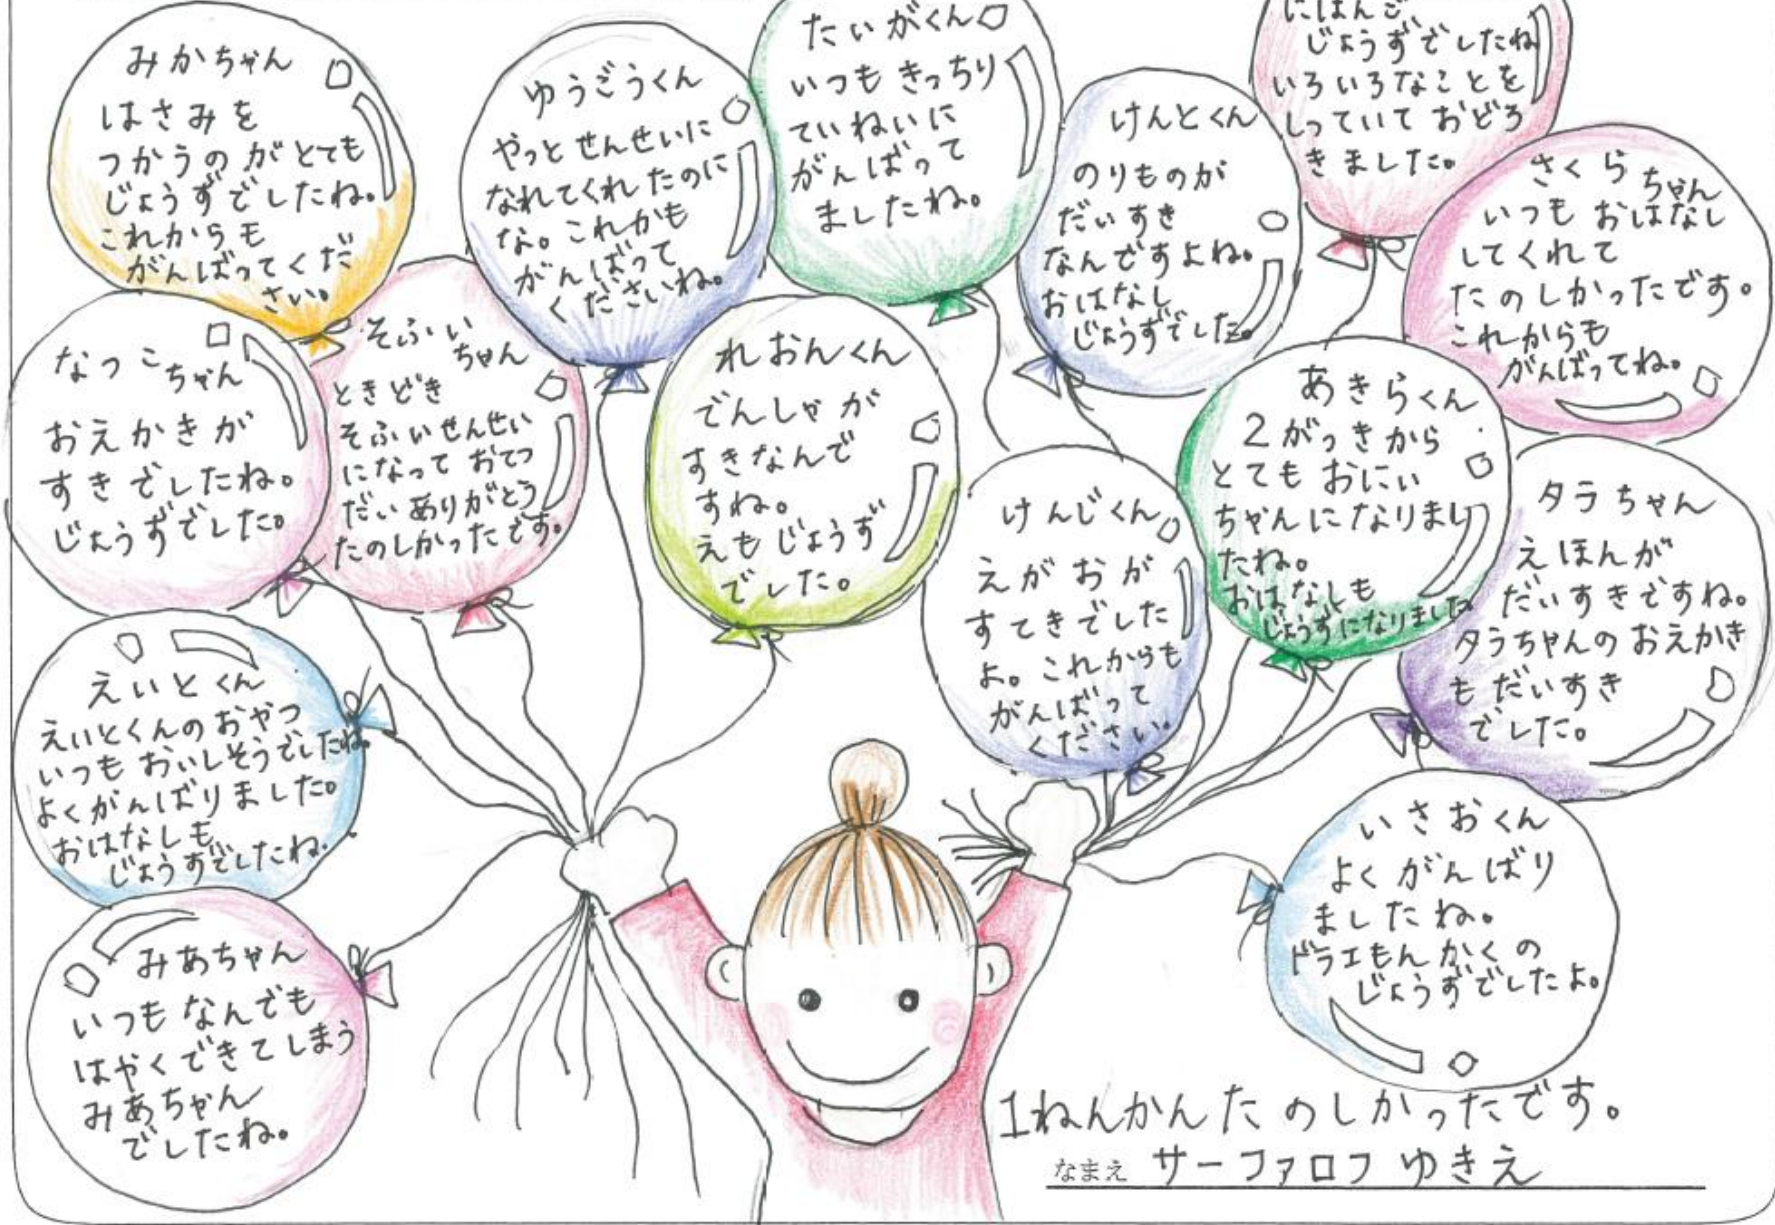 みかちゃん
はさみを
つかうのがとても
じょうずでしたね。
これからも
がんばってくだ
さい。
ゆうごうくん
やっとせんせいに
なれてくれたのに
な。これかも
がんばって
くださいね。
たいがくん
いつもきっちり
ていねいに
がんばって
ましたね。
けんとくん
のりものが
だいすき
なんですよね。
おはなし
じょうずでした。
にほんご
じょうずでしたね
いろいろなことを
しっていておどろ
きました。
さくらちゃん
いつもおはなし
してくれて
たのしかったです。
これからも
がんばってね。
なつこちゃん
おえかきが
すきでしたね。
じょうずでした。
そふいちゃん
ときどき
そふいせんせい
になっておてつ
だいありがとう
たのしかったです。
れおんくん
でんしゃが
すきなんで
すね。
えもじょうず
でした。
けんじくん
えがおが
すてきでした
よ。これからも
がんばって
ください。
あきらくん
2がっきから
とてもおにい
ちゃんになりまし
たね。
おはなしも
じょうずになりました
タラちゃん
えほんが
だいすきですね。
タラちゃんのおえかき
もだいすき
でした。
えいとくん
えいとくんのおやつ
いつもおいしそうでしたね。
よくがんばりました。
おはなしも
じょうずでしたね。
みあちゃん
いつもなんでも
はやくできてしまう
みあちゃん
でしたね。
いさおくん
よくがんばり
ましたね。
ドラエもんかくの
じょうずでしたよ。
1ねんかんたのしかったです。
なまえ サーファロフゆきえ